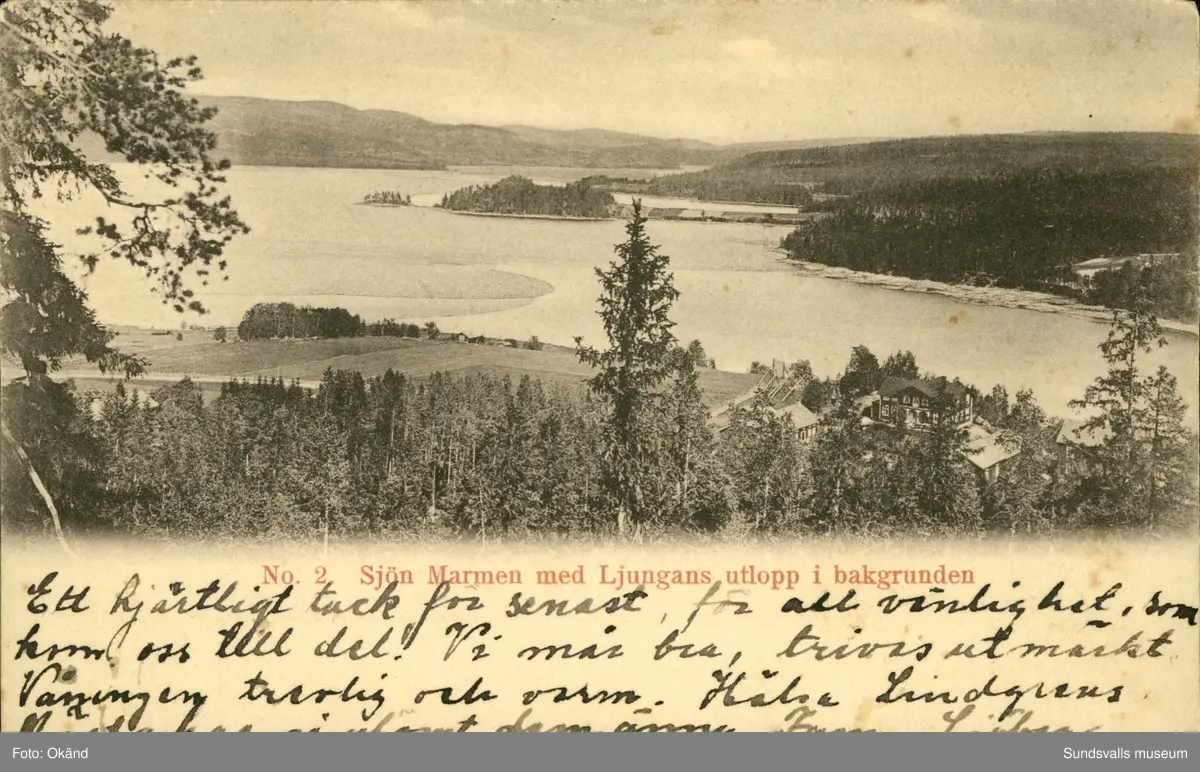 No. 2. Sjön Marmen med Ljungans utlopp i bakgrunden
Ett hjärtligt tack för senast, för all vänlighet, som
kom oss till del! Vi mår bra, trivas utmärkt
Våningen trevlig och varm. Hälsa Lindgrens
Foto: Okänd
Sundsvalls museum